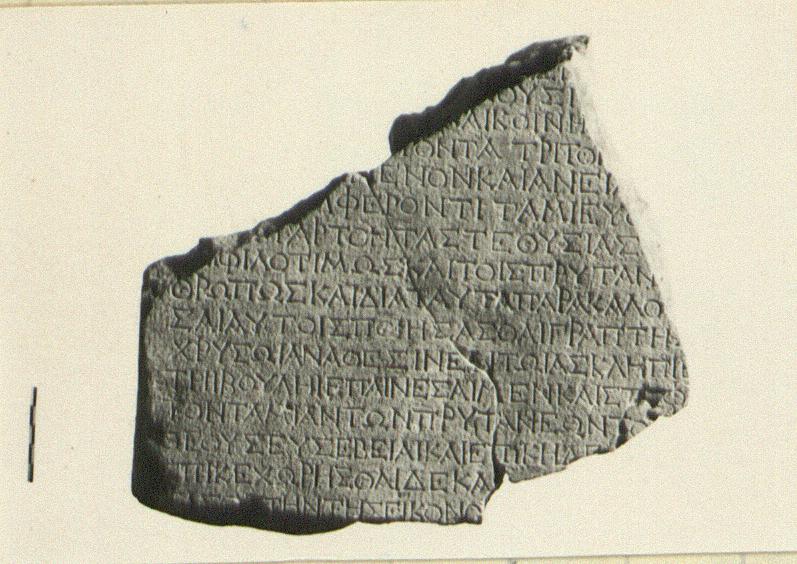 ΟΥΣΙ
ΑΙΚΟΙΝΗ
ΟΝΤΑ ΤΡΙΤΟ
ΕΝΟΝΚΑΙΑΝΕΙ
ΦΕΡΟΝΤΙ ΤΑΜΙΕΥΟ
ΑΡΤΟΝΤΑΣΤΕΘΥΣΙΑΣ
ΦΙΛΟΤΙΜΩΣΚΑΙΤΟΙΣΠΡΥΤΑΝ
ΘΡΩΠΩΣΚΑΙΔΙΑΤΑΥΤΑΠΑΡΑΚΑΛΟ
ΣΑΙΑΥΤΟΙΣΠΟΗΣΑΣΘΑΙΓΡΑΠΤΗ
ΧΡΥΣΩΙΑΝΑΘΕΣΙΝΕΝΤΩΙΑΣΚΛΗΠΙΕ
ΤΗΙΒΟΥΛΗΙΕΠΑΙΝΕΣΑΙΜΕΝΚΑΙΣΤ
ΤΟΝΤΑΜΙΑΝΤΩΝΠΡΥΤΑΝΕΩΝΤ
ΘΕΟΥΣΕΥΣΕΒΕΙΑΙΚΑΙΕ
ΠΙΚΕΧΩΡΗΣΘΑΙΔΕΚΑ
ΤΗΝΤΗΣΕΙΚΟΝΟ